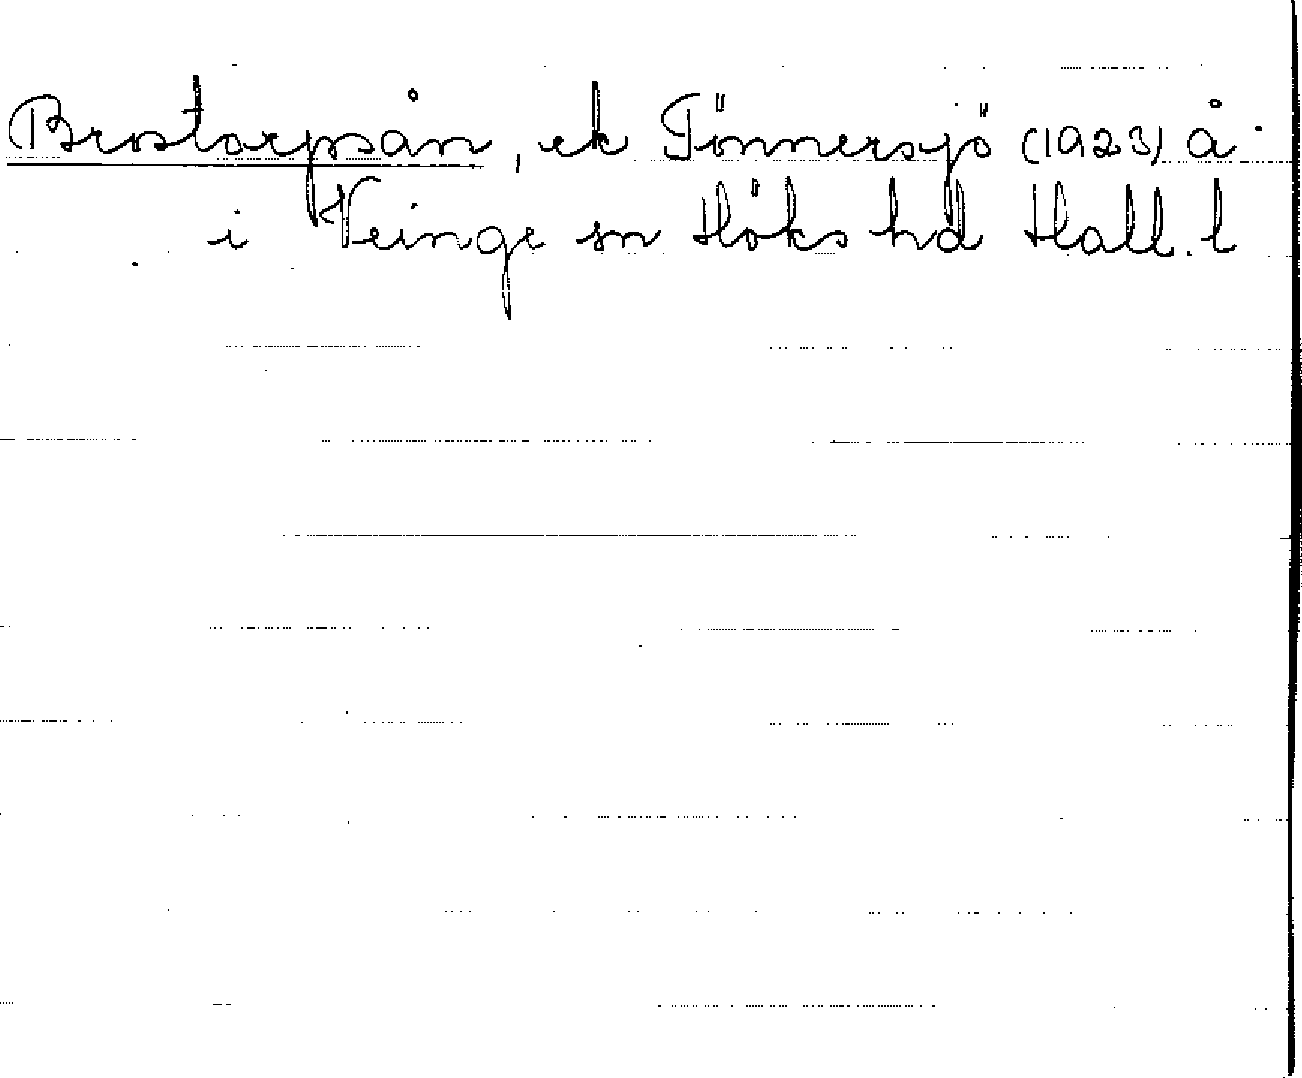 Brostorpsån, ek Tönnersjö (1923) å
i Veinge sn Höks hd Hall. l